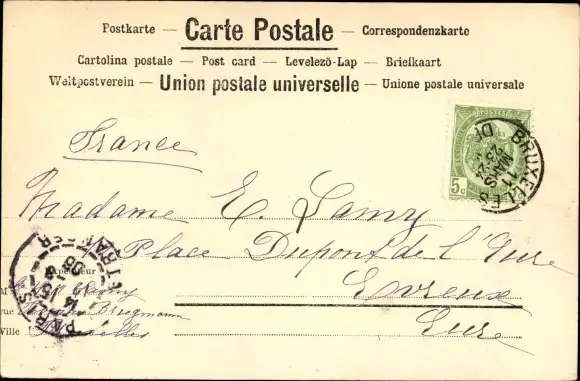 Postkarte — Carte Postale — Correspondenzkarte
Cartolina postale — Post card — Levelező-Lap — Briefkaart
Weltpostverein — Union postale universelle — Unione postale universale
France
POSTES
5c
BRUXELLES
MARS
Madame E. Lamy
Place Dupont de l'Eure
Evreux
Eure
PARIS
Expéditeur
rue Brugmann
Ville Bruxelles